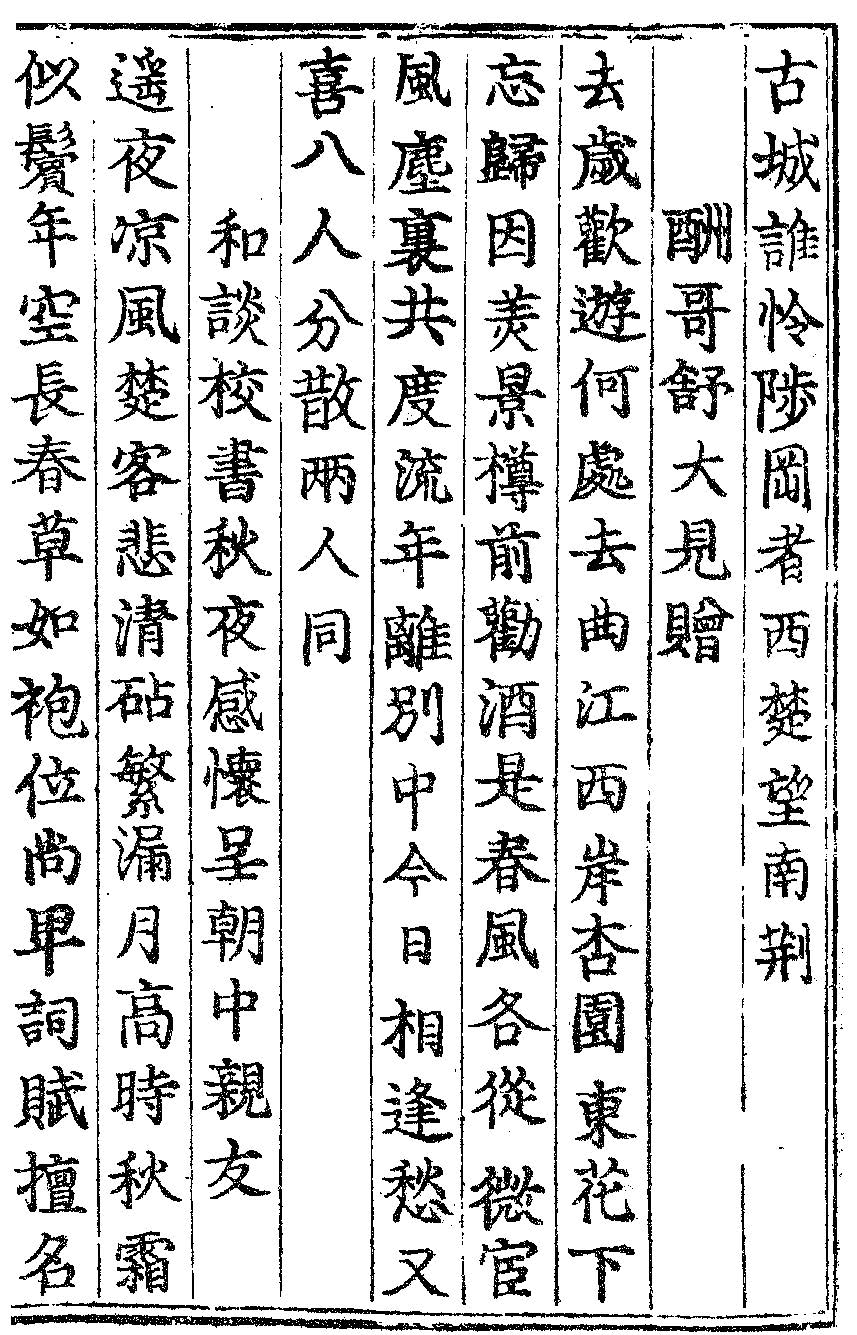 古城誰怜陟岡者西楚望南荆
酬哥舒大見贈
去歲歡遊何處去曲江西岸杏園東花下
忘歸因美景樽前勸酒是春風各從微宦
風塵裏共度流年離別中今日相逢愁又
喜八人分散兩人同
和談校書秋夜感懷呈朝中親友
遥夜凉風楚客悲清砧繁漏月高時秋霜
似鬢年空長春草如袍位尚卑詞賦擅名